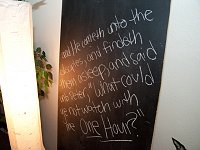 And He cometh unto the
disciples and findeth
them asleep, and said
unto Peter "What could
ye not watch with
me One Hour?"